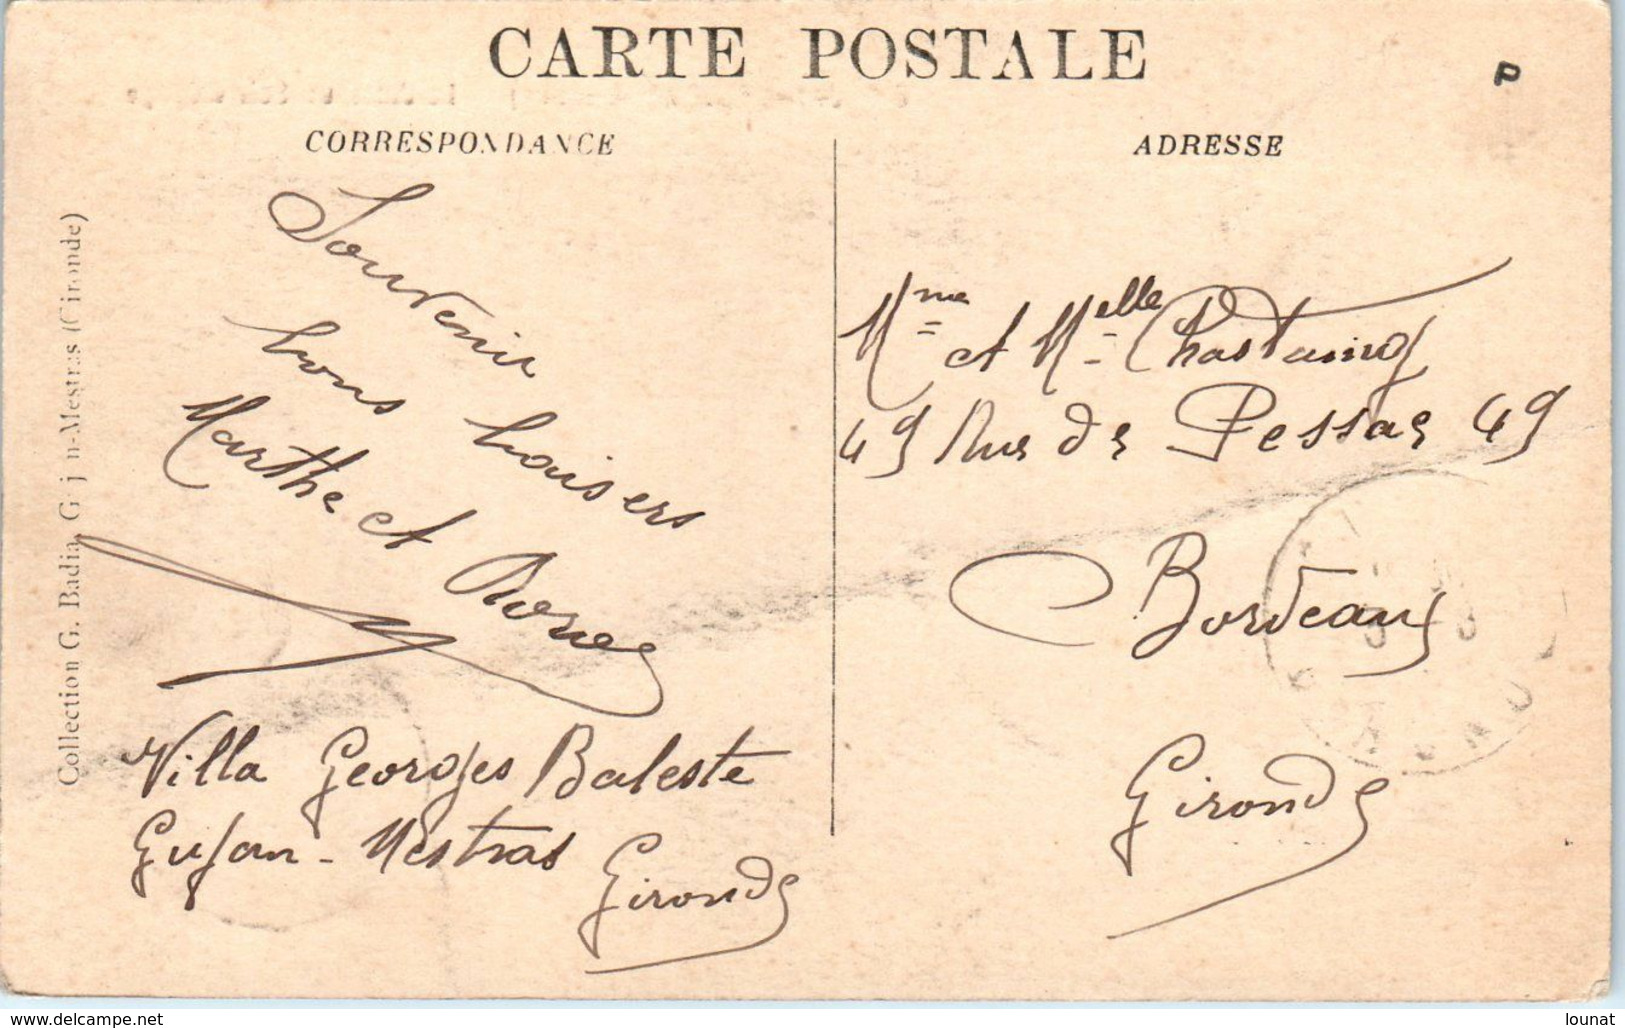 CARTE POSTALE
P
CORRESPONDANCE
ADRESSE
Souvenir
bons baisers
Marthe et
Villa Georges Baleste
Gujan-Mestras Gironde
Mme et Melle Chastaing
49 Rue de Pessac 49
Bordeaux
Gironde
Collection G. Badia, Gujan-Mestras (Gironde)
www.delcampe.net
lounat